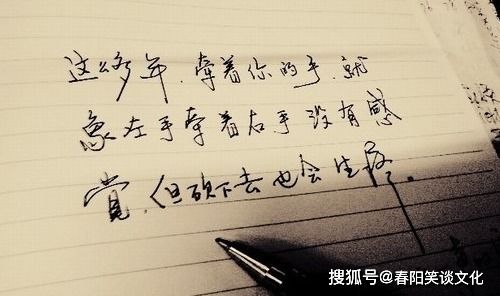 这么多年.牵着你的手.就
象左手牵着右手没有感
觉.但砍下去也会生疼.
搜狐号@春阳笑谈文化